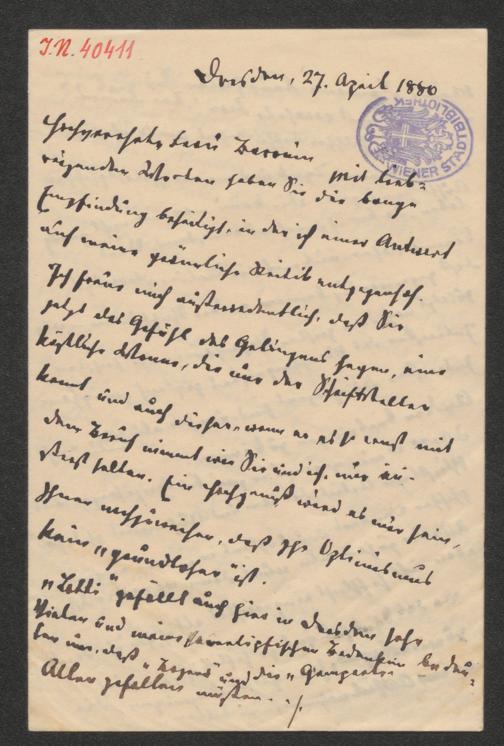 I.N. 40411
Dresden, 27. April 1880
WIENER STADTBIBLIOTHEK
Hochverehrte Frau Baronin Mit lieb-
haben Sie die bange
Empfindung beseitigt, in der ich einer Antwort
auf meine Kritik entgegensah.
Ich freue mich außerordentlich, daß Sie
jetzt das Gefühl des Gelingens hegen, eine
köstliche Wonne, die nur der Schriftsteller
kennt und auch dieser, wenn er es so ernst mit
dem Beruf nimmt wie Sie und ich, nur äu-
ßerst selten. Ein Hochgenuß wird es mir sein,
Ihnen nachzuweisen, daß Ihr Optimismus
kein „grundloser" ist.
„Lotti" gefällt auch hier in Dresden sehr
Vielen und meine Bedenken bedeu-
ten nur, daß „Bozena" und die
Allen gefallen müßten. -